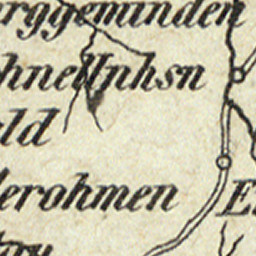 erggemünden
hnellnhsn
ld
erohmen
E